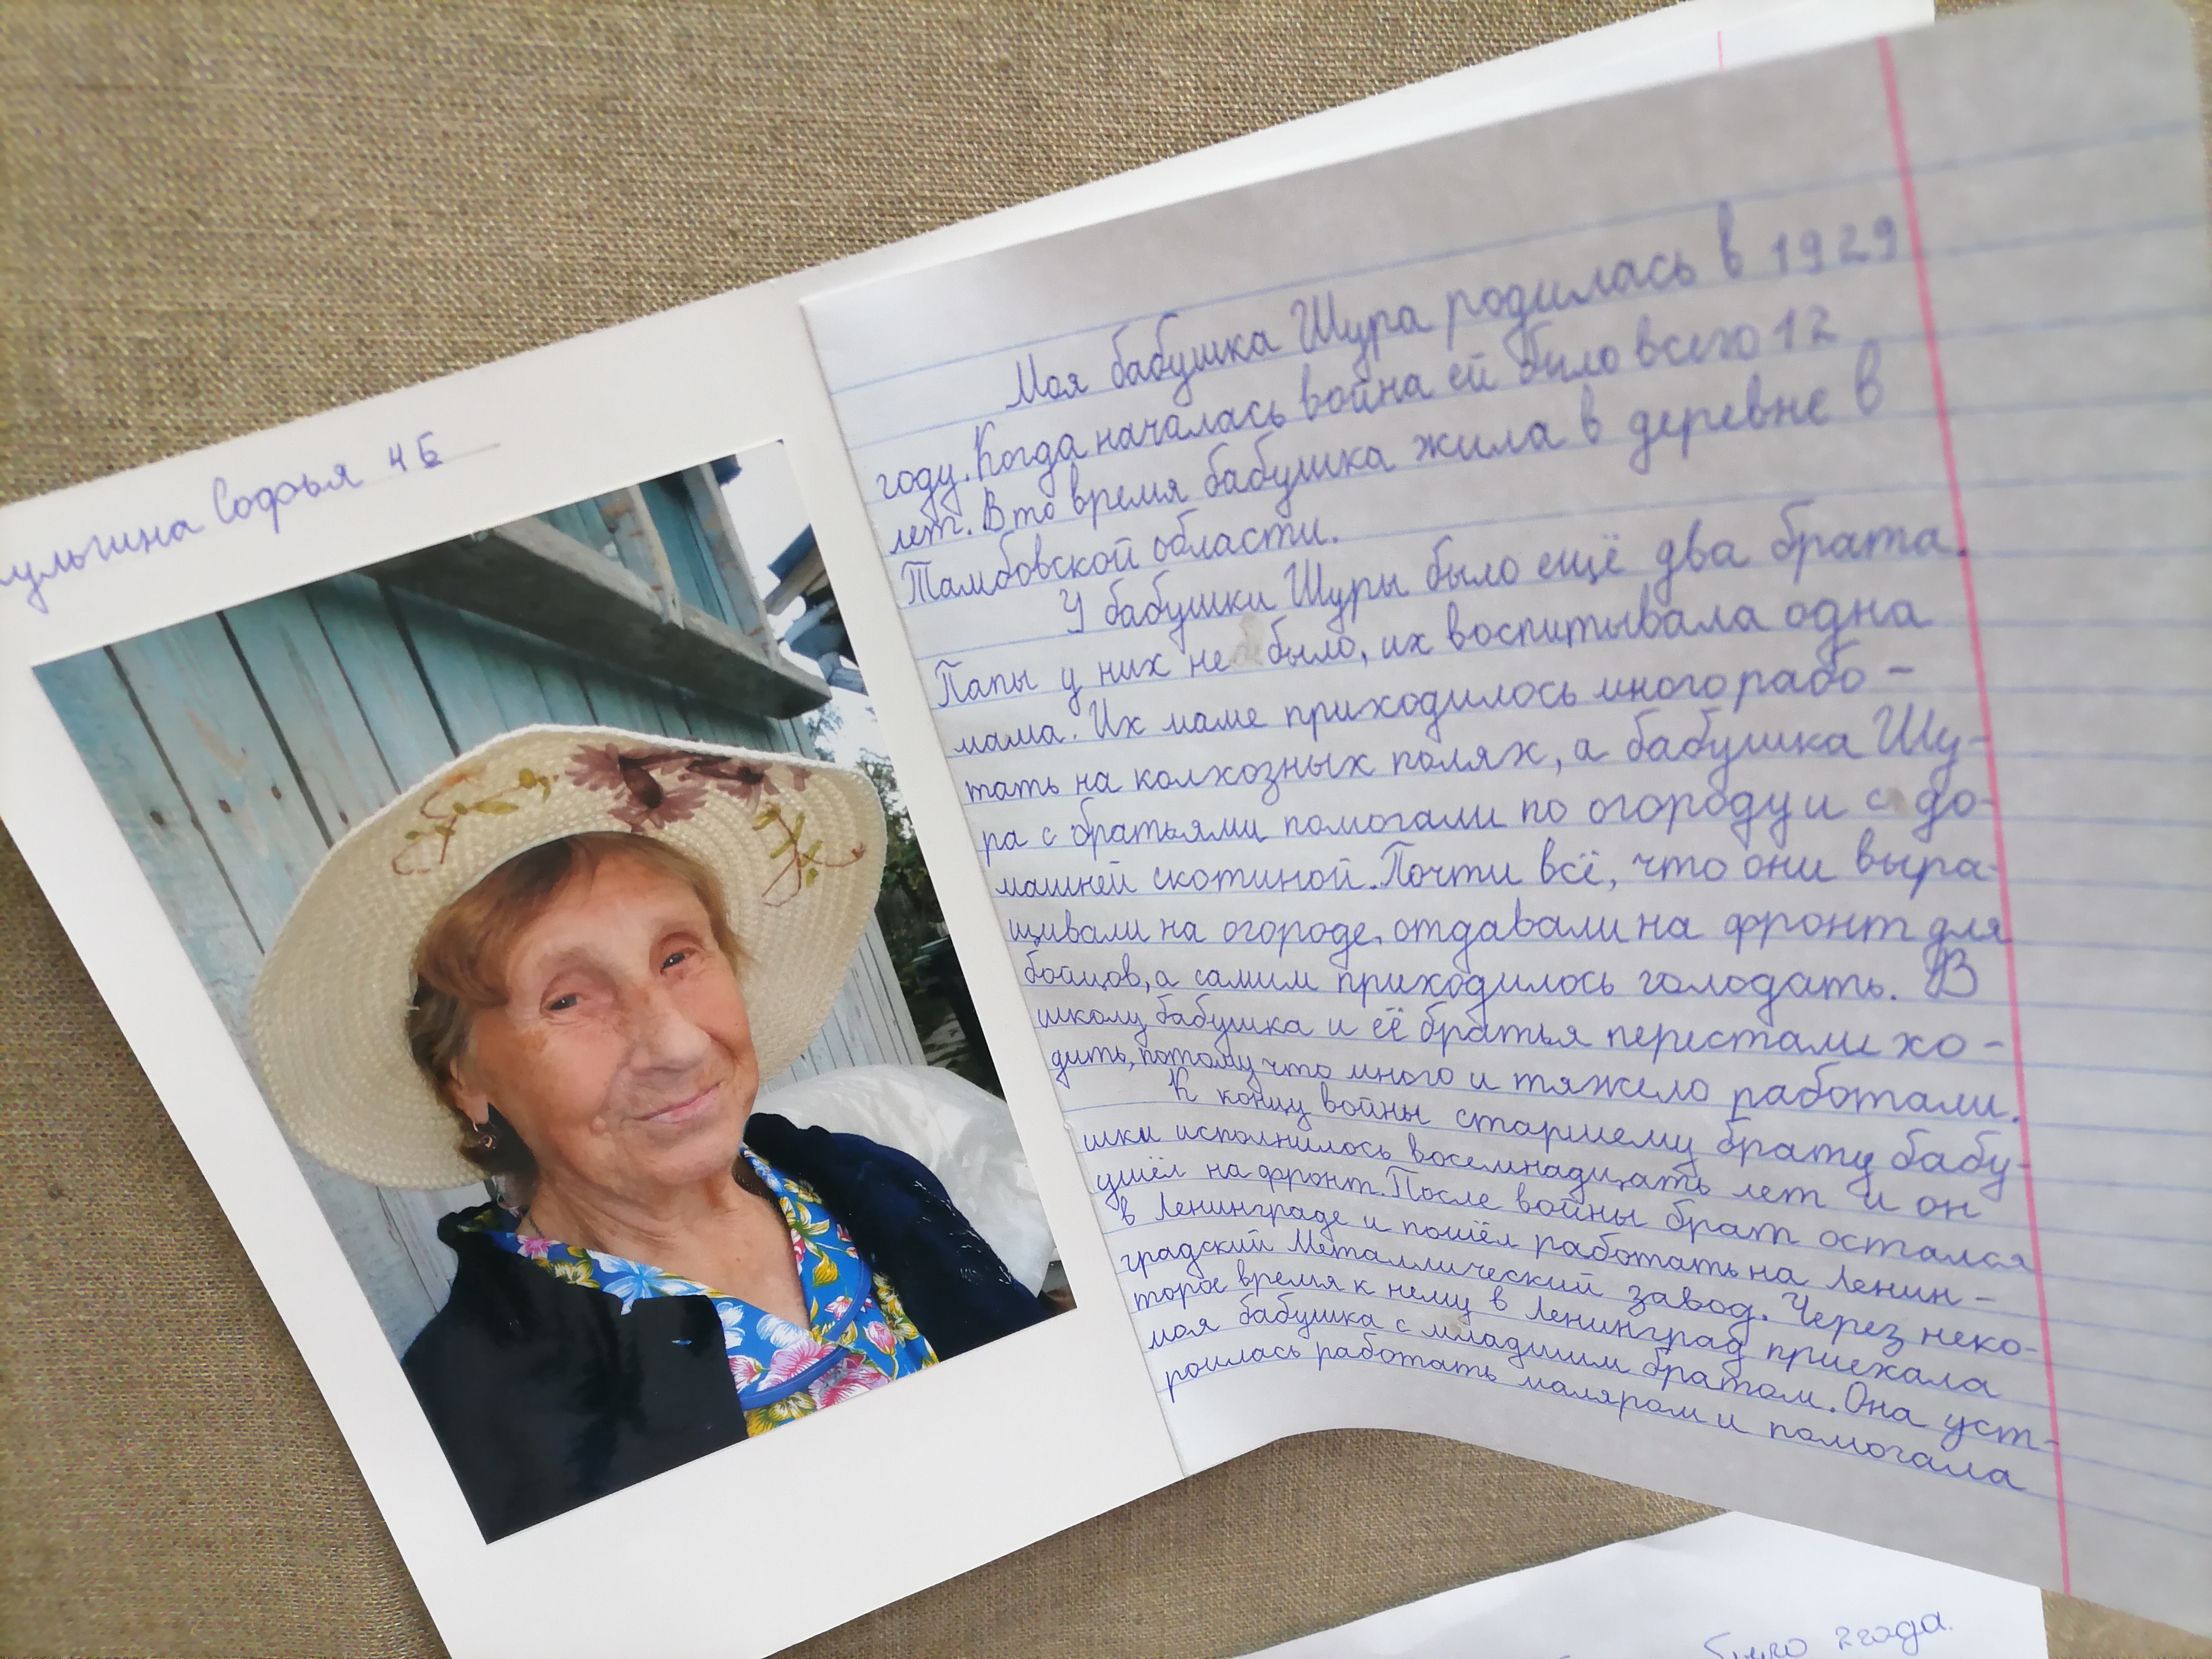 Софья 4Б
Моя бабушка Шура родилась в 1929
году. Когда началась война ей было всего 12
лет. В то время бабушка жила в деревне в
Тамбовской области.
У бабушки Шуры было ещё два брата.
Папы у них не было, их воспитывала одна
мама. Их маме приходилось много рабо-
тать на колхозных полях, а бабушка Шу-
ра с братьями помогали по огороду и с до-
машней скотиной. Почти всё, что они выра-
щивали на огороде, отдавали на фронт для
бойцов, а самим приходилось голодать. В
школу бабушка и её братья перестали хо-
дить, потому что много и тяжело работали.
К концу войны старшему брату бабу-
шки исполнилось восемнадцать лет и он
ушёл на фронт. После войны брат остался
в Ленинграде и пошёл работать на Ленин-
градский Металлический завод. Через неко-
торое время к нему в Ленинград приехала
моя бабушка с младшим братом. Она уст-
роилась работать маляром и помогала
было 2 года.